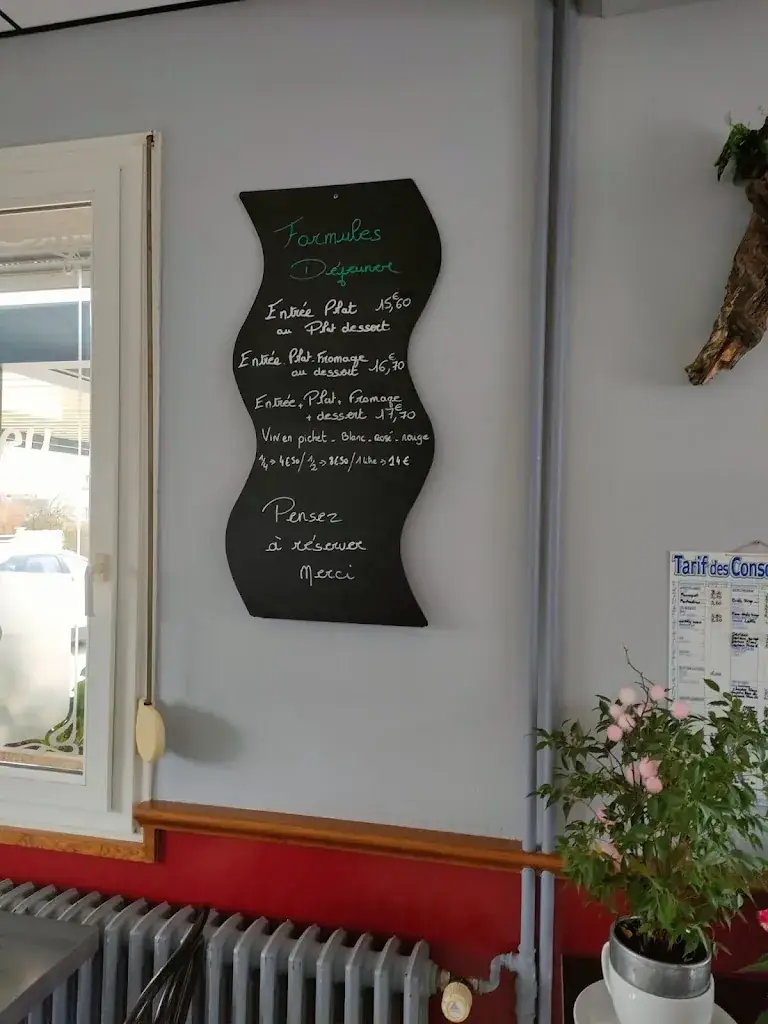 Formules
Déjeuner
Entrée Plat 15,€60
ou Plat dessert
Entrée. Plat. Fromage
ou dessert 16,€70
Entrée, Plat, Fromage
+ dessert 17,€70
Vin en pichet - Blanc - Rosé - Rouge
1/4 → 4€50 / 1/2 → 8€50 / 1 Litre → 14€
Pensez
à réserver
Merci
Tarif des Conso